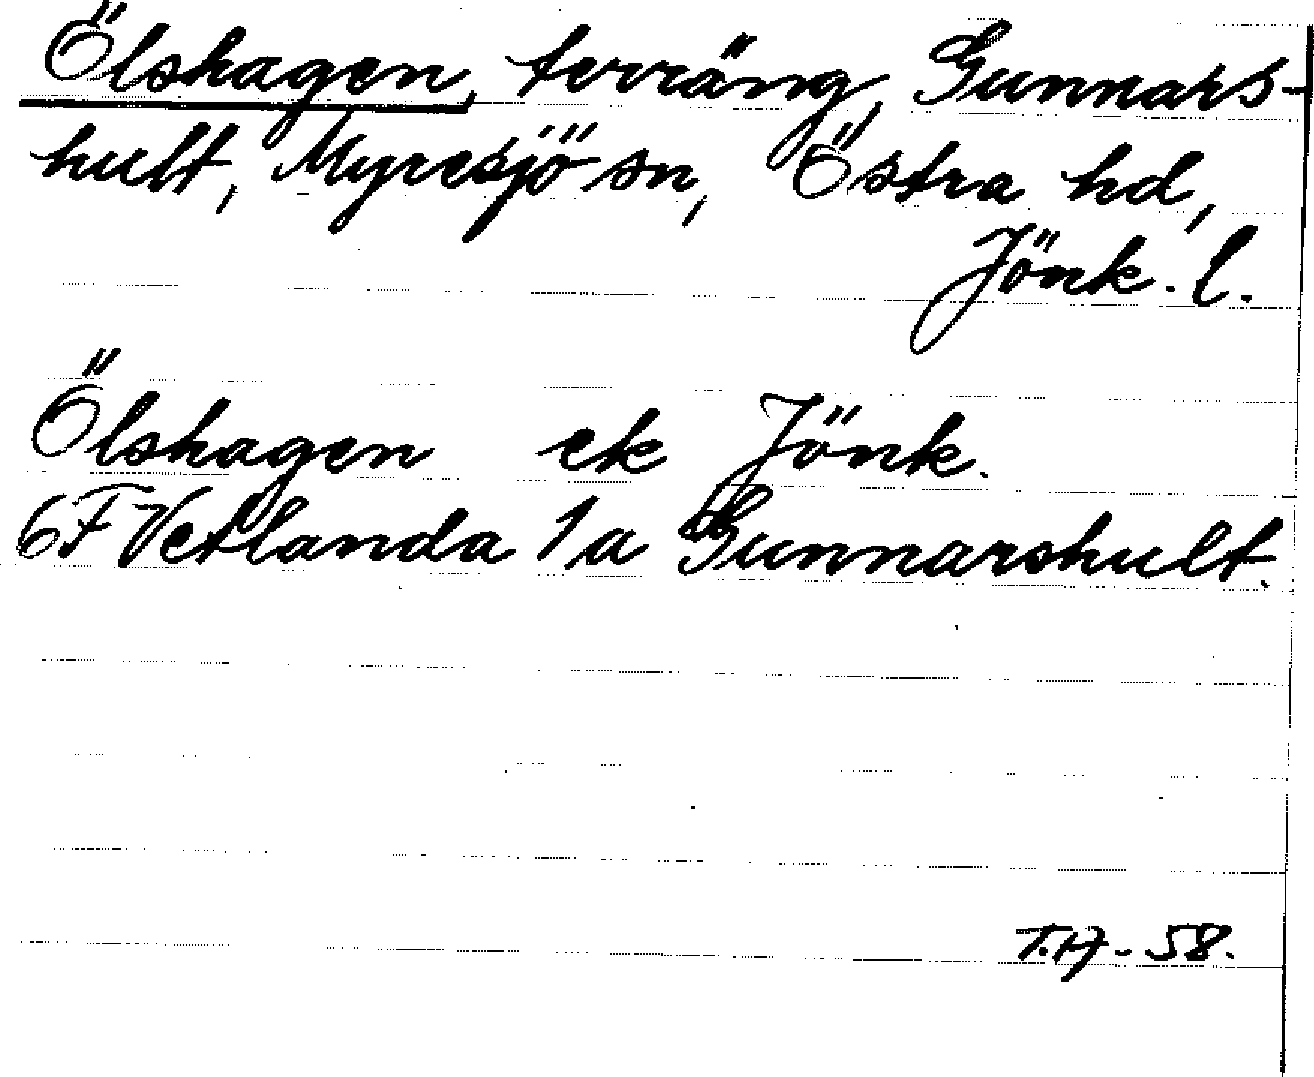 Ölshagen, terräng, Gunnars-
hult, Myresjö sn, Östra hd,
Jönk. l.
Ölshagen ek Jönk.
6F Vetlanda 1a Gunnarshult.
T.H-58.